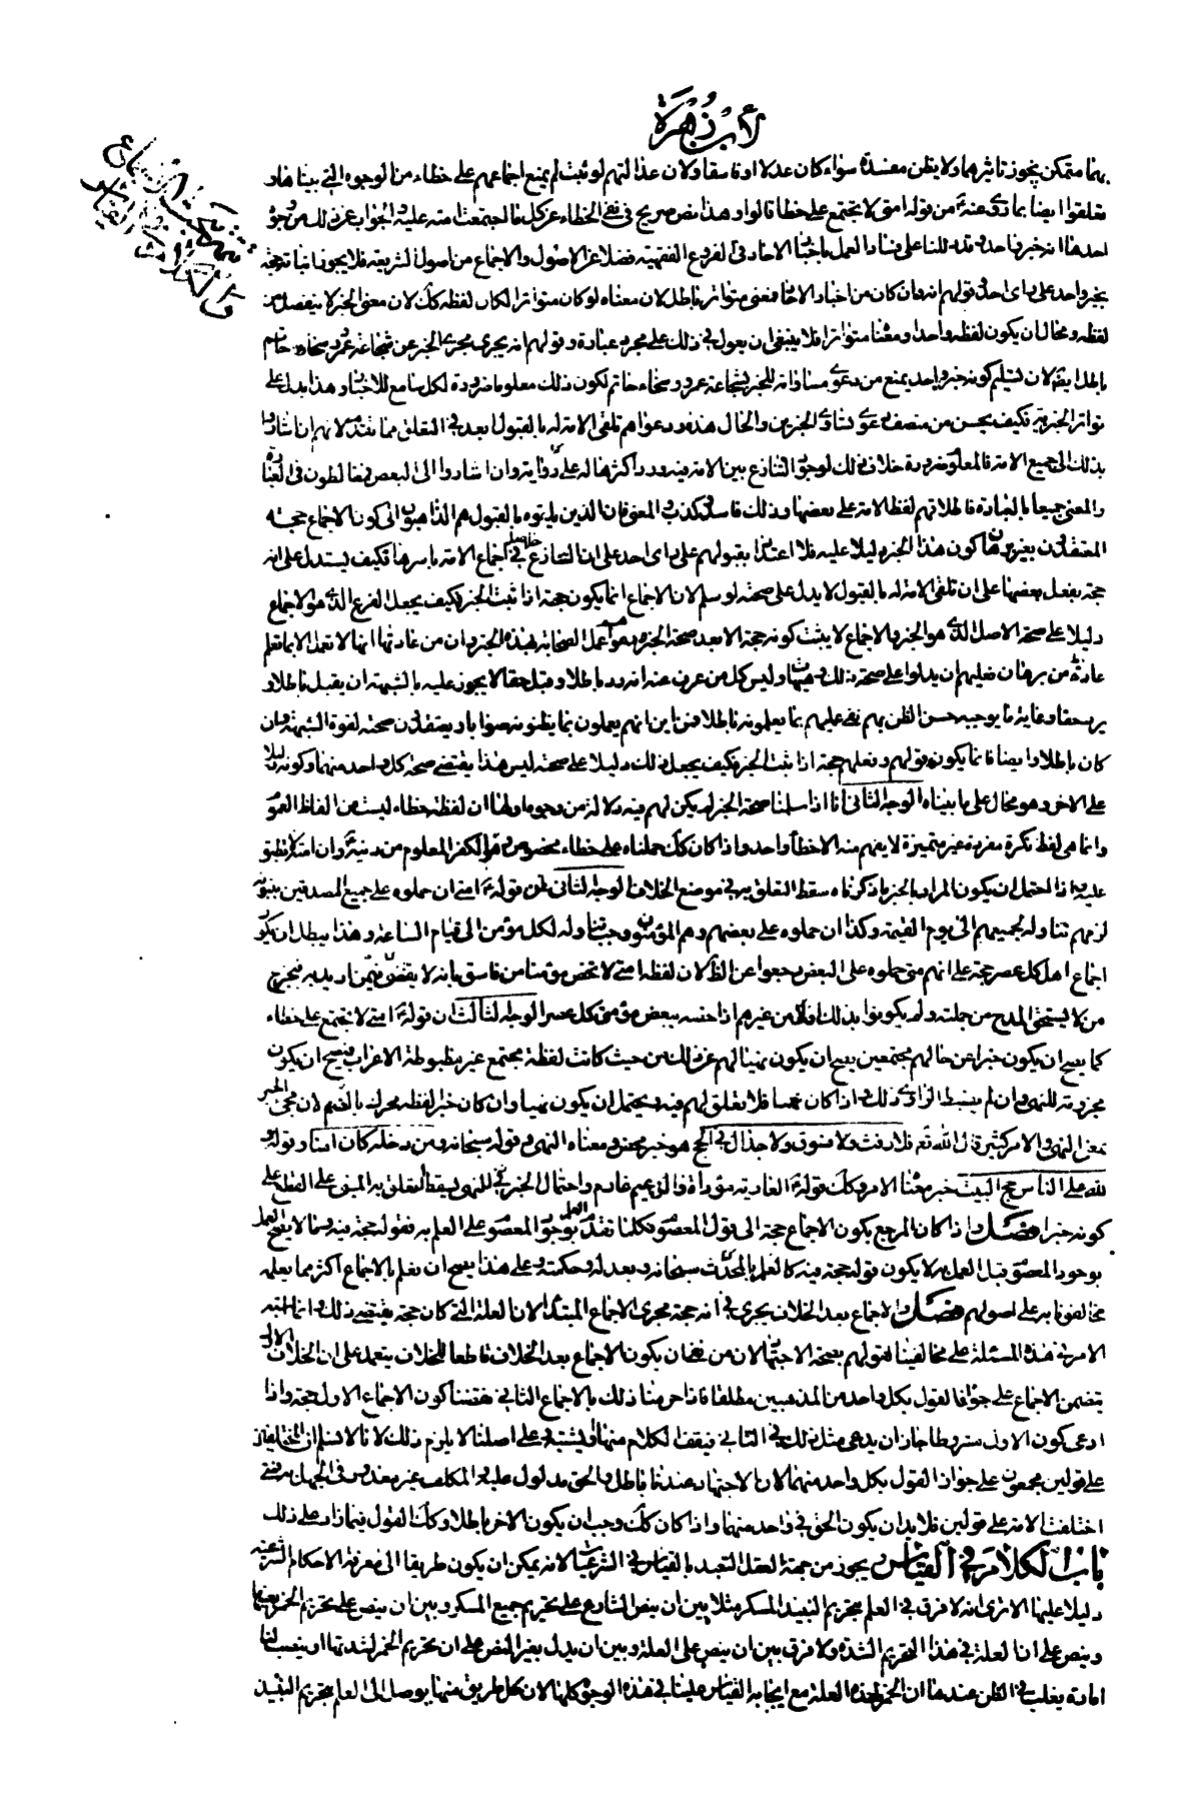 لابن زهرة
بهما متمكن يجوز تاثيرهما ولا يظن مفسدة سواء كان عدلا او فاسقا ولان عدالتهم لو ثبت لم يمنع اجماعهم على خطاء من الوجوه التي بيناها و
تعلقوا ايضا بما روى عنه من قوله امتى لا يجتمع على خطا قالوا وهذا نص صريح فى نفى الخطاء عن كل ما اجتمعت امته عليه والجواب عن ذلك من وجوه
احدها انه خبر واحد وقد دللنا على فساد العمل باخبار الاحاد فى الفروع الفقهية فضلا عن الاصول والاجماع من اصول الشريعة فلا يجوز اثباته حجة
بخبر واحد على راى احد وقولهم انه وان كان من اخبار الاحاد فمعنى متواتر باطل لان معناه لو كان متواترا لكان لفظه كك لان معنى الخبر لا ينفصل من
لفظه ومحال ان يكون لفظه واحدا ومعناه متواترا فلا ينبغى ان يعول فى ذلك على مجرد عبارة وقولهم انه يجرى مجرى الخبر عن شجاعة عمرو وسخاء حاتم
باطل ايضا لان تسليم كونه خبر واحد يمنع من دعوى مساواته للخبر بشجاعة عمرو وسخاء حاتم لكون ذلك معلوما ضرورة لكل سامع للاخبار وهذا يدل على
تواتر الخبر به فكيف يحسن من منصف دعوى تساوى الخبرين والحال هذه ودعواهم تلقى الامة له بالقبول ابعد فى التعلق مما تقدم لانهم ان اشاروا
بذلك الى جميع الامة فالمعلوم ضرورة خلاف ذلك لوجود التنازع بين الامة فيه ورد اكثرها له على روايته وان اشاروا الى البعض فغالطون فى العبارة
والمعنى جميعا بالعبارة فاطلاقهم لفظ الامة على بعضها وذلك فاسد وكذب المعنى فان الذين يلقوه بالقبول هم الذاهبون الى كون الاجماع حجة
المعتقدون بغير برهان كون هذا الخبر دليلا عليه فلا اعتداد بقبولهم على راى احد على ان التنازع حاصل فى اجماع الامة باسرها فكيف يستدل على انه
حجة بفعل بعضها على ان تلقى الامة له بالقبول لا يدل على صحته لو سلم لان الاجماع انما يكون حجة اذا ثبت الخبر فكيف يجعل الفرع الذى هو الاجماع
دليلا على صحة الاصل الذى هو الخبر والاجماع لا يثبت كونه حجة الا بعد صحة الخبر ودعوى عمل الصحابة بهذا الخبر وان من عادتها انها لا تعمل الا بما تعلم
عادة من برهان فعليهم ان يدلوا على صحة ذلك وهيهات وليس كل من عرف عنه انه رد باطلا وقبل حقا لا يجوز عليه بالشبهة ان يقبل باطلا و
يرد حقا وغاية ما يوجبه حسن الظن بهم نفى عليهم بما يعلمونه باطلا فمن اين انهم يعملون بما يظنونه صوابا ويعتقدون صحته لقوة الشبهة وان
كان باطلا وايضا فانما يكون قولهم وفعلهم حجة اذا ثبت الخبر فكيف يجعل ذلك دليلا على صحته ليس هذا يقتضى صحة كل واحد منهما وكونه دليلا
على الاخر وهو محال على ما بيناه الوجه الثانى انا اذا سلمنا صحة الخبر لم يكن لهم فيه دلالة من وجوه اولها ان لفظة خطاء ليست من الفاظ العموم
وانما هى لفظ نكرة مفردة غير متميزة لا يفهم منه الا خطأ واحد واذا كان كك حملناه على خطاء مخصوص وهو الكفر المعلوم من دينه
عليه اذا احتمل ان يكون المراد بالخبر ما ذكرناه سقط التعلق به فى موضع الخلاف الوجه الثانى من قوله امتى ان حملوه على جميع المصدقين بنبوته
لزمهم تناوله لجميعهم الى يوم القيمة وكذا ان حملوه على بعضهم وهم المؤمنون وجب تناوله لكل مؤمن الى قيام الساعة وهذا يبطل ان يكون
اجماع اهل كل عصر حجة على انهم متى حملوه على البعض رجعوا عن الظ لان لفظه امتى لا تخص مؤمنا من فاسق بانه لا يقتضى فيمن اريد به فيخرج
من لا يستحق المدح من جملته ولم يكونوا بذلك اولى من غيرهم اذا خصه ببعض مؤمنى كل عصر الوجه الثالث ان قوله امتى لا يجتمع على خطاء
كما يصح ان يكون خبرا عن حالهم مجتمعين يصح ان يكون نهيا لهم عن ذلك من حيث كانت لفظة يجتمع غير مظبوطة الاعراب فيصح ان يكون
مجزومة للنهى وان لم يضبط الراوى ذلك واذا كان نهيا فلا تعلق لهم فيه ويحتمل ان يكون نهيا وان كان خبرا لفظه محرك بالضم لان مجئ الخبر
بمعنى النهى والامر كثير قال الله تع فلا رفث ولا فسوق ولا جدال فى الحج هو خبر محض ومعناه النهى وقوله سبحانه ومن دخله كان امنا وقوله و
لله على الناس حج البيت خبر معناه الامر وكك قوله العارية مؤداة والزعيم غارم واحتمال الخبر للنهى يسقط التعلق به المبنى على القطع على
كونه خبرا فصل واذا كان المرجع بكون الاجماع حجة الى قول المعصوم فكلما تقدم العلم بوجود المعصوم على العلم به فقوله حجة فيه وما لا يصح العلم
بوجود المعصوم قبل العلم به لا يكون قوله حجة فيه كالعلم بالمحدث سبحانه وبعدله وحكمته وعلى هذا يصح ان نعلم بالاجماع اكثر مما يعلمه
مخالفونا به على اصولهم فصل والاجماع بعد الخلاف يجرى فى انه حجة مجرى الاجماع المبتدا لان العلة التى كان حجة يقتضى ذلك وانما اشتبه
الامر فى هذه المسئلة على مخالفينا لقولهم بصحة الاجتهاد لان من نفى ان يكون الاجماع بعد الخلاف قاطعا للخلاف يعتمد على ان الخلاف الاول
يتضمن الاجماع على جواز القول بكل واحد من المذهبين مطلقا فاذا حرمنا ذلك بالاجماع الثانى نقضنا كون الاجماع الاول حجة واذا
ادعى كون الاول مشروطا جاز ان يدعى مثل ذلك فى الثانى فيقف الكلام منهما ويشتبه وعلى اصلنا لا يلزم ذلك لانا لا نسلم ان المختلفين
على قولين مجمعون على جواز القول بكل واحد منهما لان الاجتهاد عندنا باطل والحق مدلول عليه والمكلف غير معذور فى الجهل به فمتى
اختلفت الامة على قولين فلا بد ان يكون الحق فى واحد منهما واذا كان كك وجب ان يكون الاخر باطلا وكك القول فيما زاد على ذلك
باب الكلام فى القياس يجوز من جهة العقل التعبد بالقياس فى الشرعيات لانه يمكن ان يكون طريقا الى معرفة الاحكام الشرعية
دليلا عليها الا ترى انه لا فرق فى العلم بتحريم النبيذ المسكر مثلا بين ان ينص الشارع على تحريم جميع المسكر وبين ان ينص على تحريم الخمر بعينها
وينص على ان العلة فى هذا التحريم الشدة ولا فرق بين ان ينص على العلة وبين ان يدل بغير النص على ان تحريم الخمر لشدتها او ينصب لنا
امارة يغلب فى الظن عندها ان الخمر لهذه العلة مع ايجابه القياس علينا فى هذه الوجوه كلها لان كل طريق منها يوصل الى العلم بتحريم النبيذ